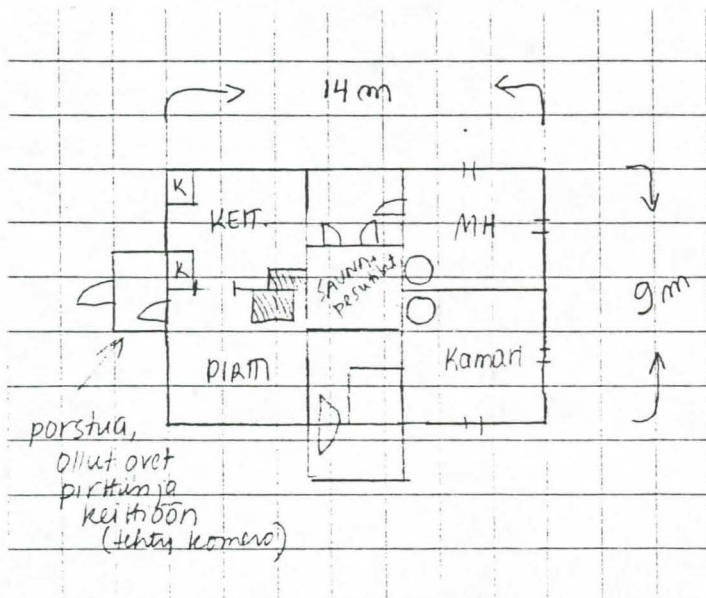 14 m
K
KEIT.
MH
K
SAUNA,
pesuh.
9 m
PIRTTI
Kamari
porstua,
ollut ovet
pirttiin ja
keittiöön
(tehty komero)